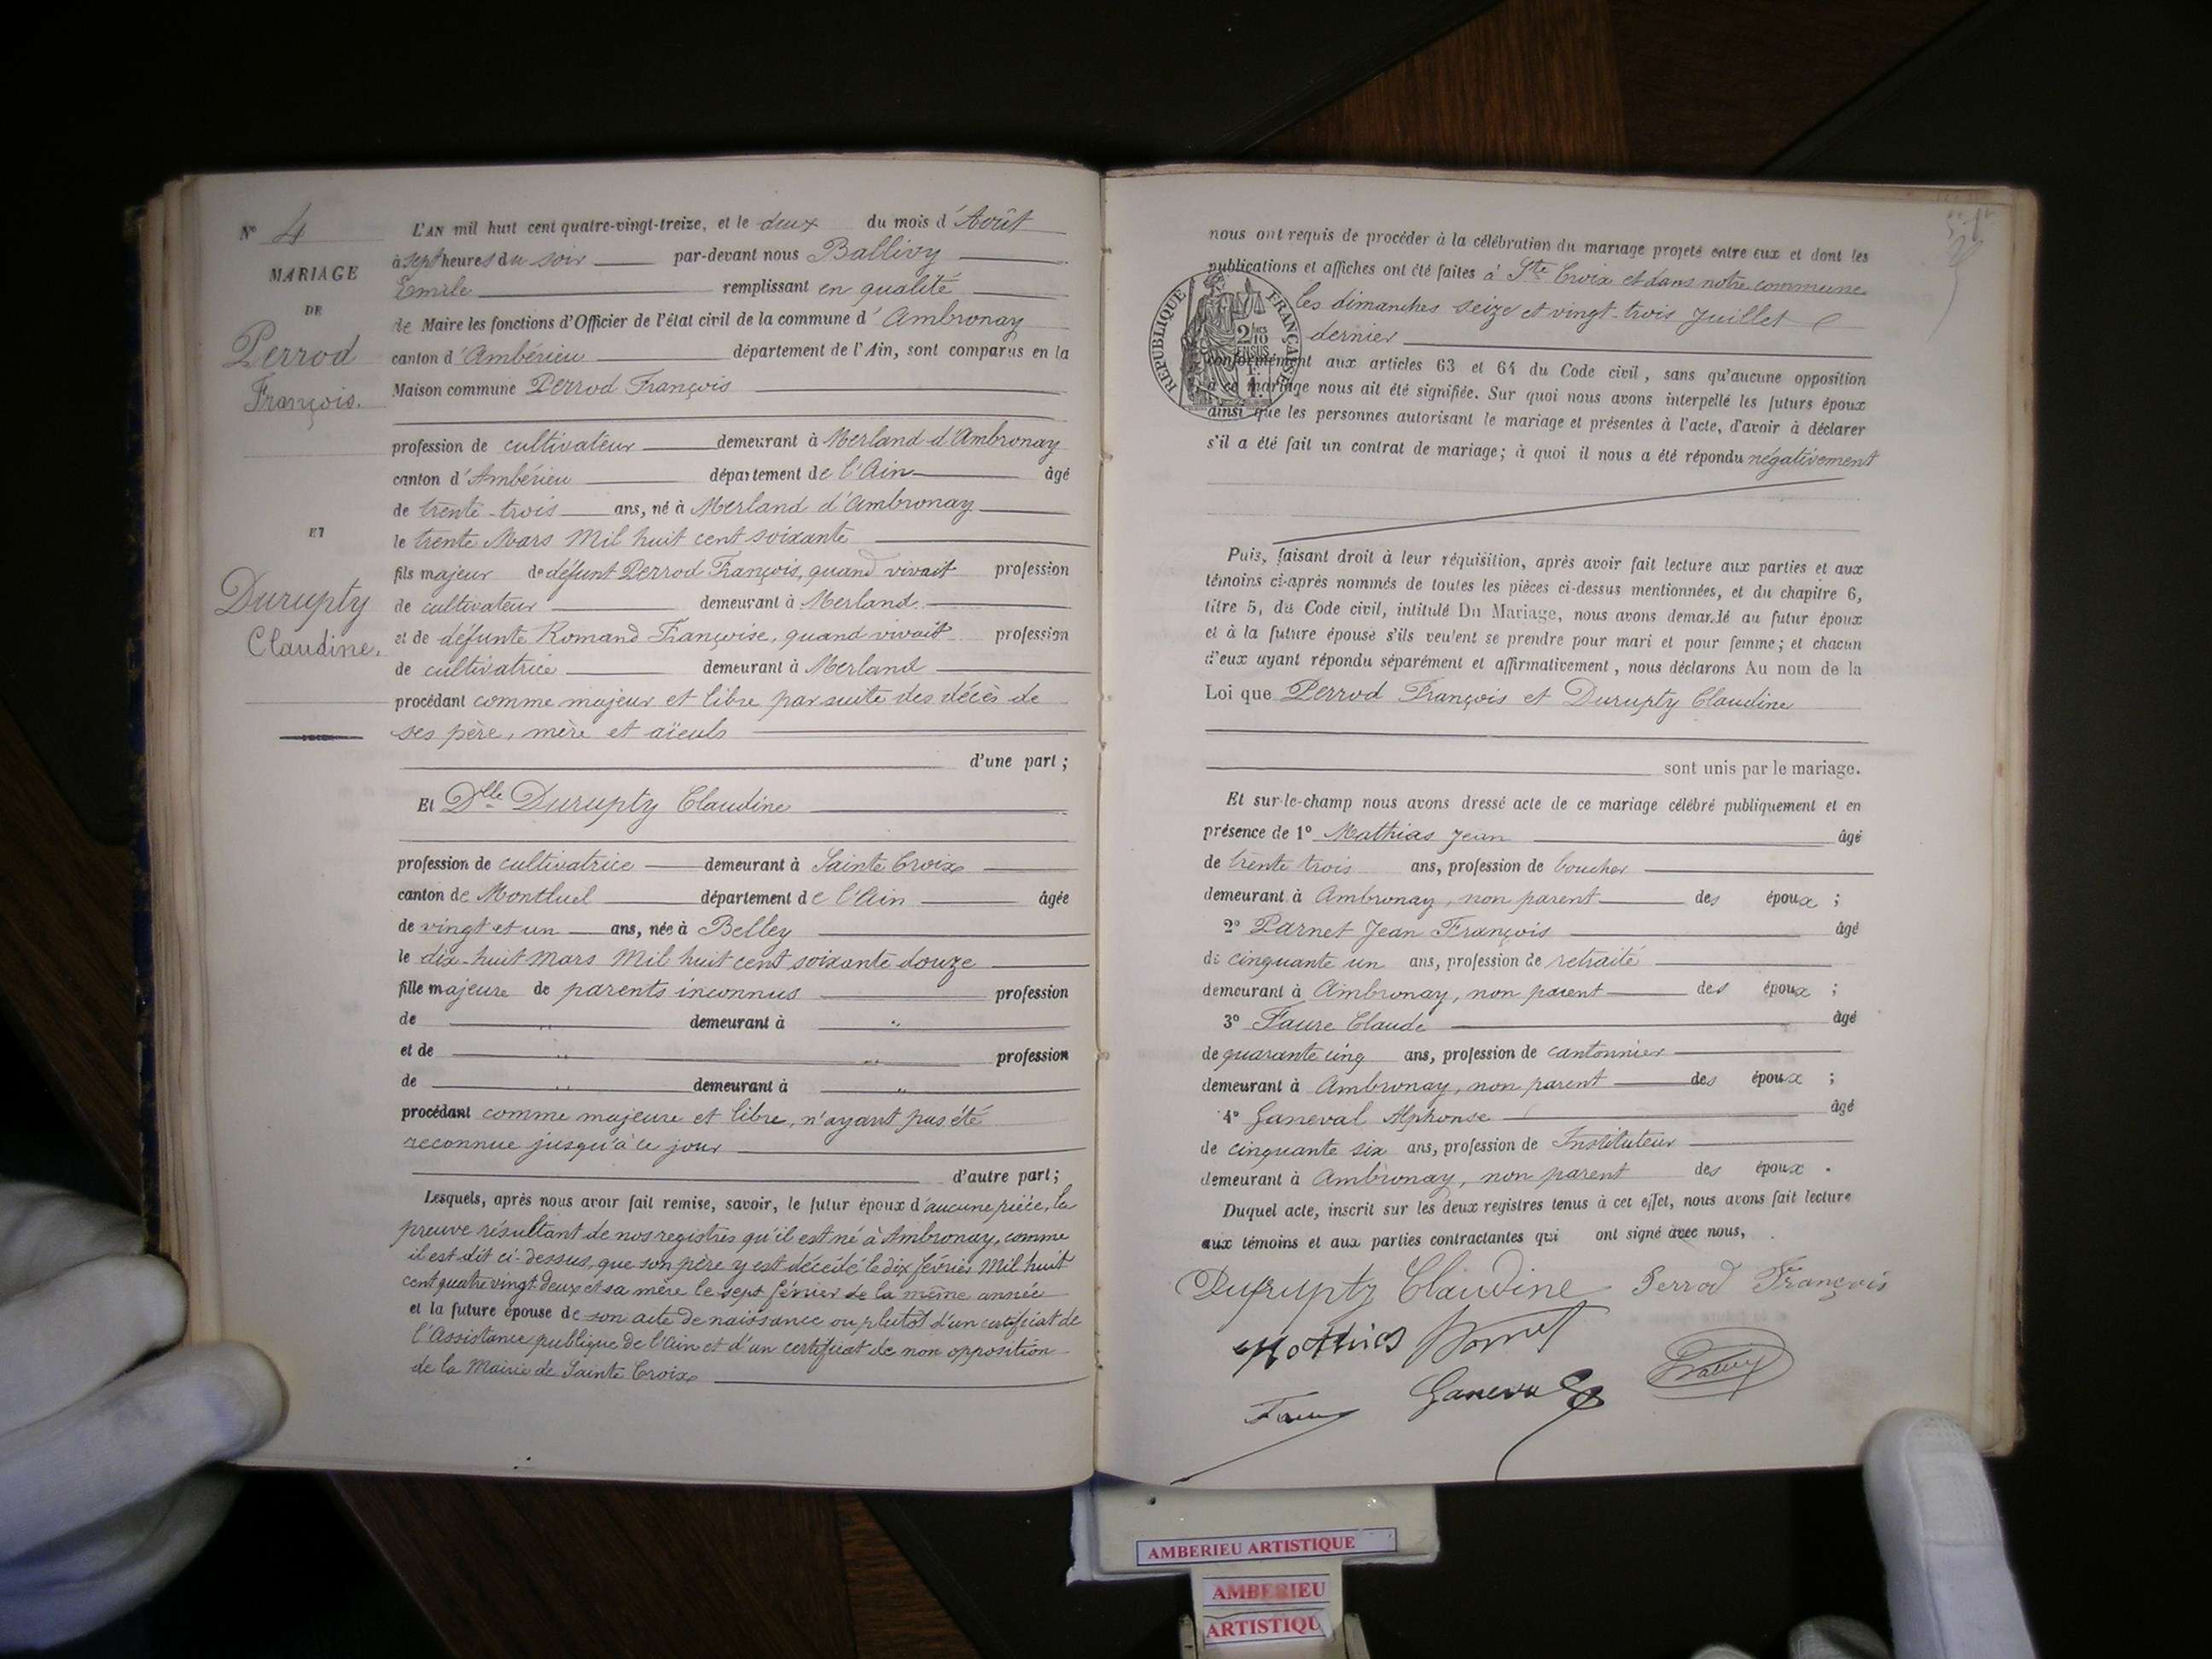 N° 4
MARIAGE
DE
Perrod
François.
ET
Durupty
Claudine.
L'AN mil huit cent quatre-vingt-treize, et le deux du mois d'Août
à sept heures du soir par-devant nous Ballivy
Emile remplissant en qualité
de Maire les fonctions d'Officier de l'état civil de la commune d'Ambronay
canton d'Ambérieu département de l'Ain, sont comparus en la
Maison commune Perrod François
profession de cultivateur demeurant à Merland d'Ambronay
canton d'Ambérieu département de l'Ain âgé
de trente-trois ans, né à Merland d'Ambronay
le trente Mars Mil huit cent soixante
fils majeur de défunt Perrod François, quand vivait profession
de cultivateur demeurant à Merland
et de défunte Romand Françoise, quand vivait profession
de cultivatrice demeurant à Merland
procédant comme majeur et libre par suite des décès de
ses père, mère et aïeuls
d'une part;
Et Dlle Durupty Claudine
profession de cultivatrice demeurant à Sainte Croix
canton de Montluel département de l'Ain âgée
de vingt et un ans, née à Belley
le dix-huit Mars Mil huit cent soixante douze
fille majeure de parents inconnus profession
de " demeurant à "
et de " " profession
de " demeurant à "
procédant comme majeure et libre, n'ayant pas été
reconnue jusqu'à ce jour
d'autre part;
Lesquels, après nous avoir fait remise, savoir, le futur époux d'aucune pièce, la
preuve résultant de nos registres qu'il est né à Ambronay, comme
il est dit ci-dessus, que son père y est décédé le dix février Mil huit
cent quatre vingt deux et sa mère le sept février de la même année
et la future épouse de son acte de naissance ou plutôt d'un certificat de
l'Assistance publique de l'Ain et d'un certificat de non opposition
de la Mairie de Sainte Croix
nous ont requis de procéder à la célébration du mariage projeté entre eux et dont les
publications et affiches ont été faites à Ste Croix et dans notre commune
les dimanches seize et vingt-trois Juillet
dernier
RÉPUBLIQUE FRANÇAISE
2/10
EN SUS
conformément aux articles 63 et 64 du Code civil, sans qu'aucune opposition
à ce mariage nous ait été signifiée. Sur quoi nous avons interpellé les futurs époux
ainsi que les personnes autorisant le mariage et présentes à l'acte, d'avoir à déclarer
s'il a été fait un contrat de mariage; à quoi il nous a été répondu négativement
Puis, faisant droit à leur réquisition, après avoir fait lecture aux parties et aux
témoins ci-après nommés de toutes les pièces ci-dessus mentionnées, et du chapitre 6,
titre 5, du Code civil, intitulé Du Mariage, nous avons demandé au futur époux
et à la future épouse s'ils veulent se prendre pour mari et pour femme; et chacun
d'eux ayant répondu séparément et affirmativement, nous déclarons Au nom de la
Loi que Perrod François et Durupty Claudine
sont unis par le mariage.
Et sur-le-champ nous avons dressé acte de ce mariage célébré publiquement et en
présence de 1° Mathias Jean âgé
de trente trois ans, profession de boucher
demeurant à Ambronay, non parent des époux ;
2° Parnet Jean François âgé
de cinquante un ans, profession de retraité
demeurant à Ambronay, non parent des époux ;
3° Faure Claude âgé
de quarante cinq ans, profession de cantonnier
demeurant à Ambronay, non parent des époux ;
4° Ganeval Alphonse âgé
de cinquante six ans, profession de Instituteur
demeurant à Ambronay, non parent des époux .
Duquel acte, inscrit sur les deux registres tenus à cet effet, nous avons fait lecture
aux témoins et aux parties contractantes qui ont signé avec nous,
Durupty Claudine Perrod François
Mathias Parnet
Faure Ganeval
AMBERIEU ARTISTIQUE
AMBERIEU
ARTISTIQU